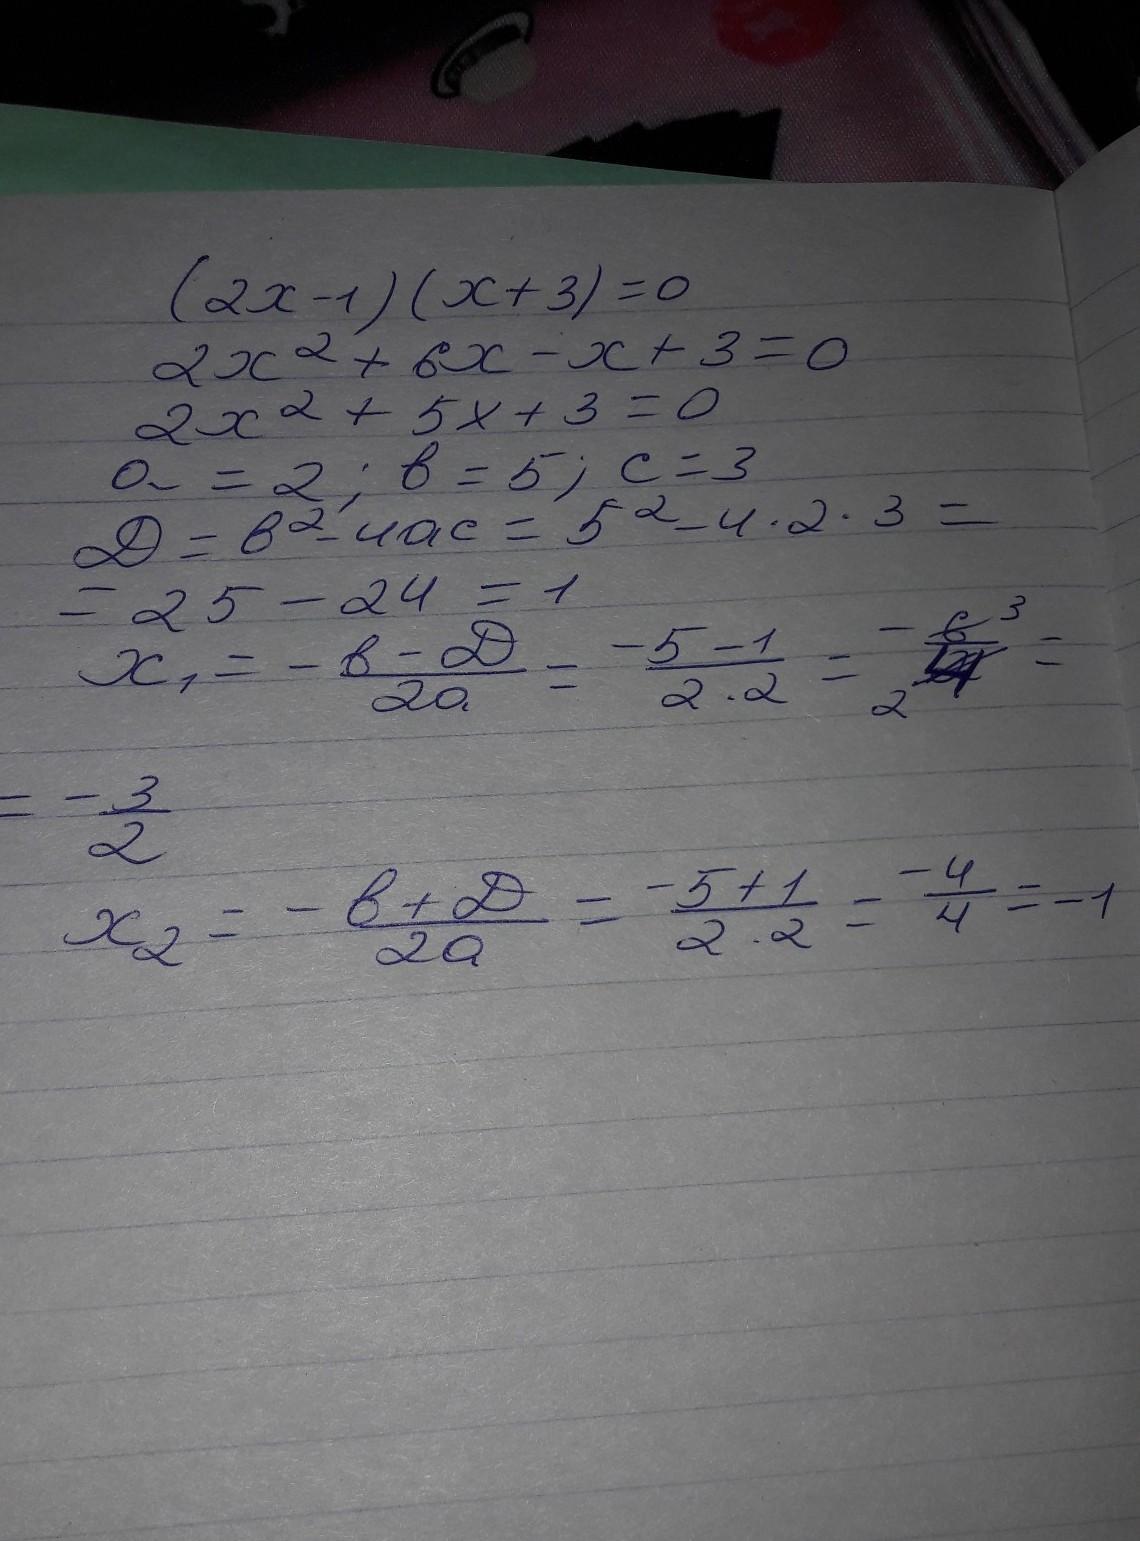 (2x-1)(x+3)=0
2x²+6x-x+3=0
2x²+5x+3=0
a=2; в=5; c=3
Д=в²-4ac=5²-4·2·3=
=25-24=1
x₁=-в-Д/2a=-5-1/2·2=-6 3/2 4=
=-3/2
x₂=-в+Д/2a=-5+1/2·2=-4/4=-1